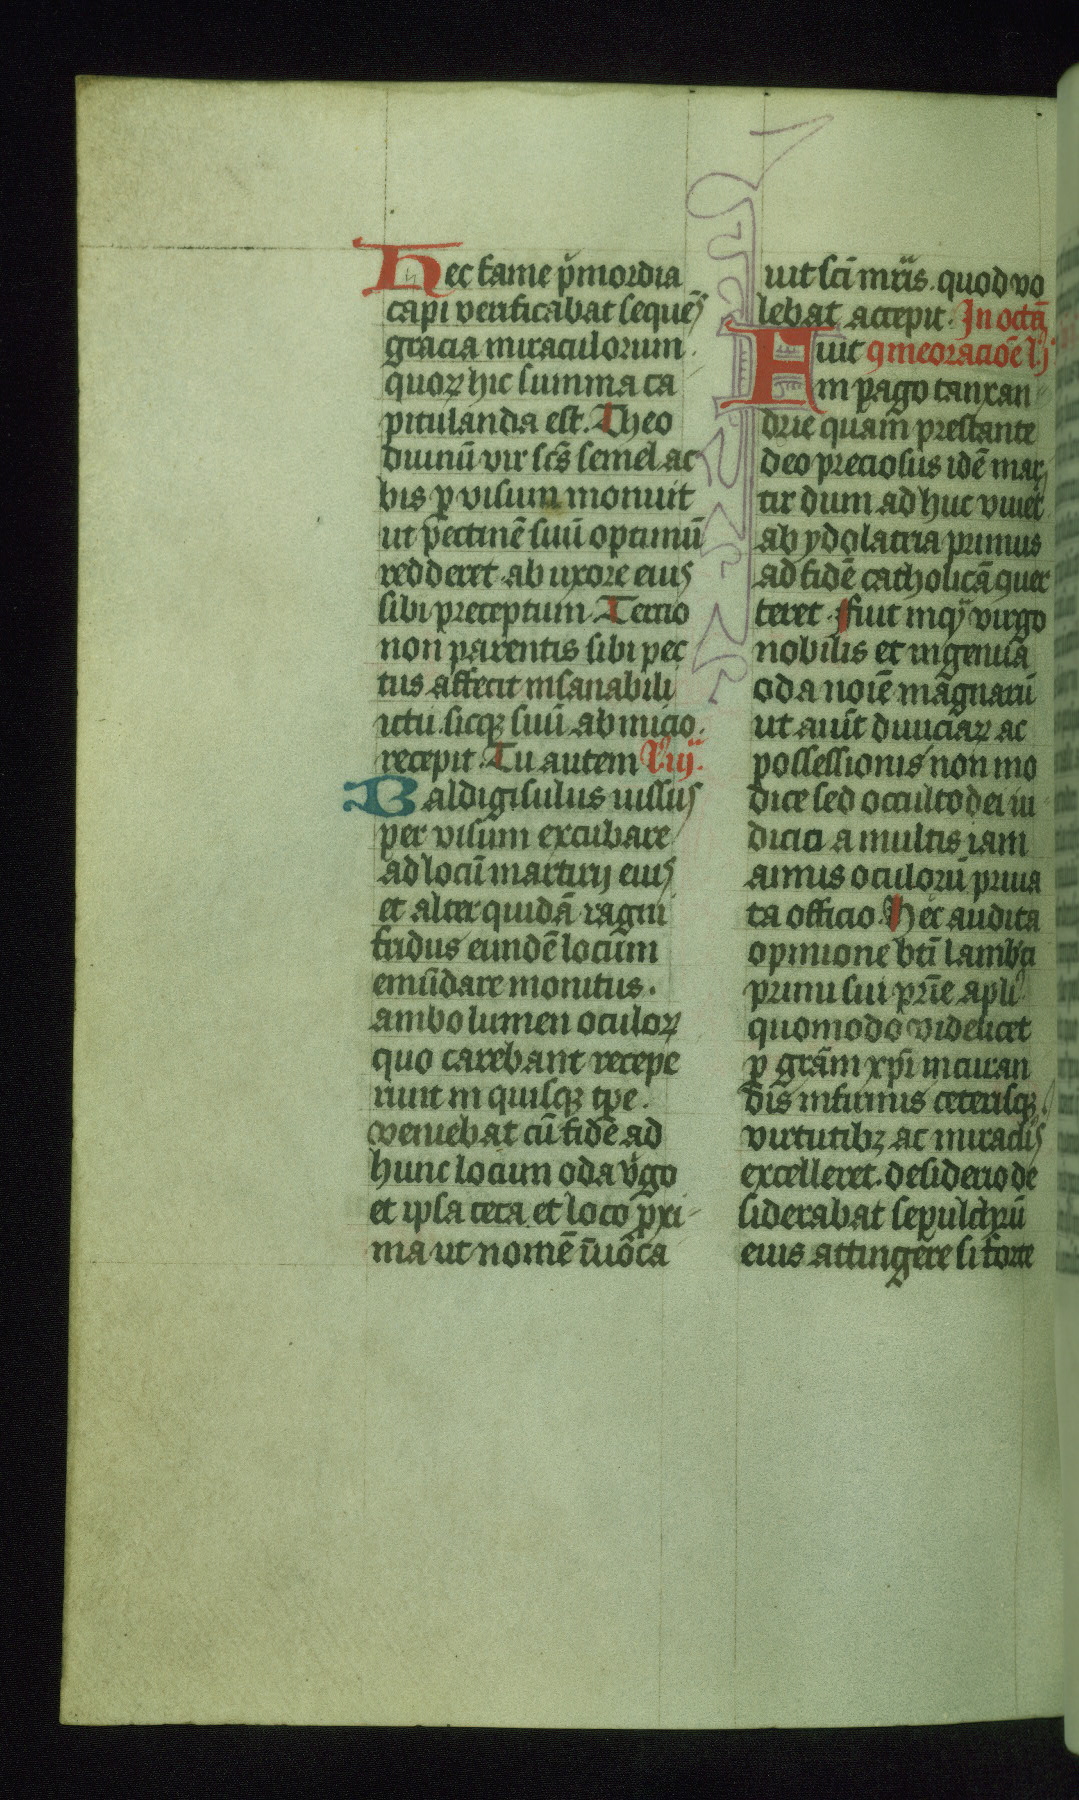 Hec fame p̾mordia
capi verificabat sequēs
gracia miraculorum.
quoꝝ hic summa ca
pitulanda est. Theo
duinū vir scs̄ semel ac
bis ꝑ visum monuit
ut pectinē suū optimū
redderet ab uxore eius
sibi preceptum. Tercio
non parentis sibi pec
tus affecit insanabili
ictu sicqꝫ suū ab inicio.
recepit. Tu autem L' iij.
Baldigisulus iussus
per visum excubare
ad locū martirij eius
et alter quidā ragin
fridus eundē locum
emūdare monitus.
ambo lumen oculoꝝ
quo carebant recepe
runt in quisqꝫ tpe.
veniebat cū fide ad
hunc locum oda v̾go
et ipsa ceca et loco ꝓxi
ma ut nomē īuoca
uit sci mr̄is. quod vo
lebat accepit. In octā
Fuit 9meoracōe l' j
in pago tanxan
drie quam prestante
deo preciosus idē mar
tir dum ad huc viuet
ab ydolatria primus
ad fidē catholicā 9uer
teret. Fuit inqͥ virgo
nobilis et ingenua
oda noīe magnarū
ut aiūt diuiciaꝝ ac
possessionis non mo
dice sed occulto dei iu
dicici a multis iam
annis oculorū priua
ta officio. Hec audita
opinione bti lamb'ti
primi sui pr̄ie apli
quomodo videlicet
ꝑ grām xp̄i in curan
dis infirmis ceterisqꝫ
virtutibꝫ ac miraclis
excelleret. desiderio de
siderabat sepulchrū
eius attingere si forte